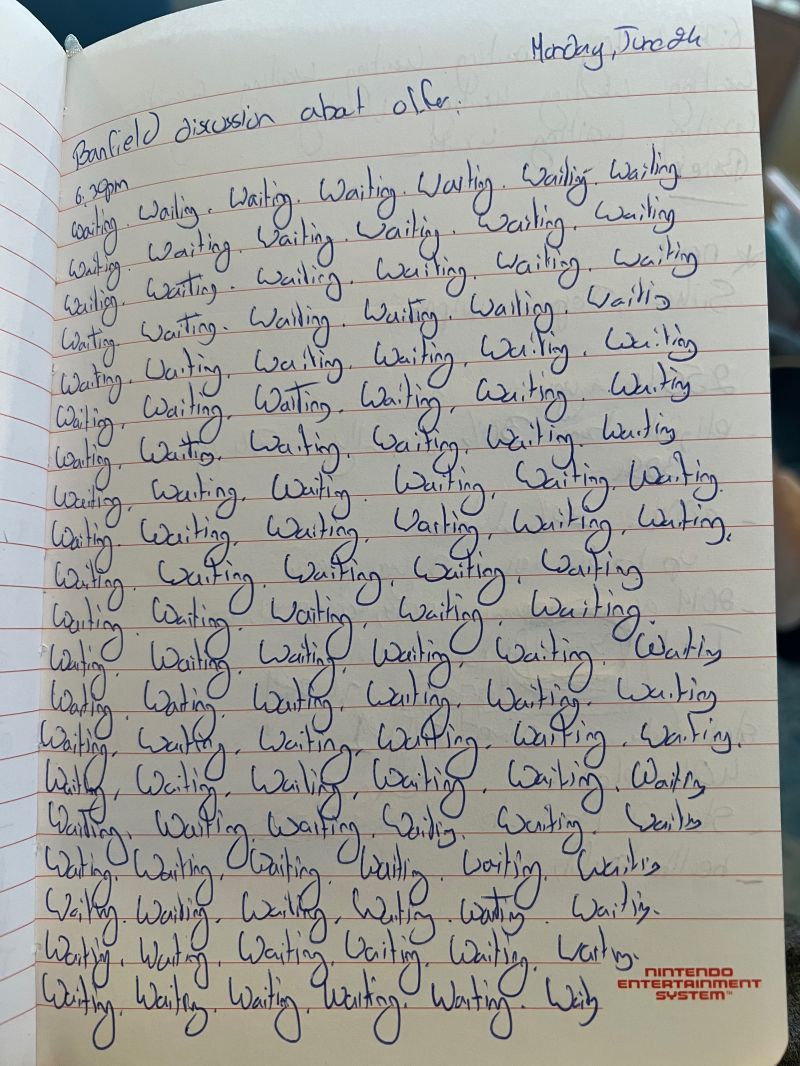 Monday, June 24
Banfield discussion about offer.
6.29pm
Waiting. Waiting. Waiting. Waiting. Waiting. Waiting. Waiting
Waiting. Waiting. Waiting. Waiting. Waiting. Waiting
Waiting. Waiting. Waiting. Waiting. Waiting. Waiting
Waiting. Waiting. Waiting. Waiting. Waiting. Waiting
Waiting. Waiting. Waiting. Waiting. Waiting. Waiting
Waiting. Waiting. Waiting. Waiting. Waiting. Waiting
Waiting. Waiting. Waiting. Waiting. Waiting. Waiting
Waiting. Waiting. Waiting. Waiting. Waiting. Waiting.
Waiting. Waiting. Waiting. Waiting. Waiting. Waiting.
Waiting. Waiting. Waiting. Waiting. Waiting
Waiting. Waiting. Waiting. Waiting. Waiting.
Waiting. Waiting. Waiting. Waiting. Waiting. Waiting
Waiting. Waiting. Waiting. Waiting. Waiting. Waiting
Waiting. Waiting. Waiting. Waiting. Waiting. Waiting.
Waiting. Waiting. Waiting. Waiting. Waiting. Waiting
Waiting. Waiting. Waiting. Waiting. Waiting. Waiting
Waiting. Waiting. Waiting. Waiting. Waiting. Waiting
Waiting. Waiting. Waiting. Waiting. Waiting. Waiting.
Waiting. Waiting. Waiting. Waiting. Waiting. Waiting.
Waiting. Waiting. Waiting. Waiting. Waiting. Waiting
NINTENDO
ENTERTAINMENT
SYSTEM™